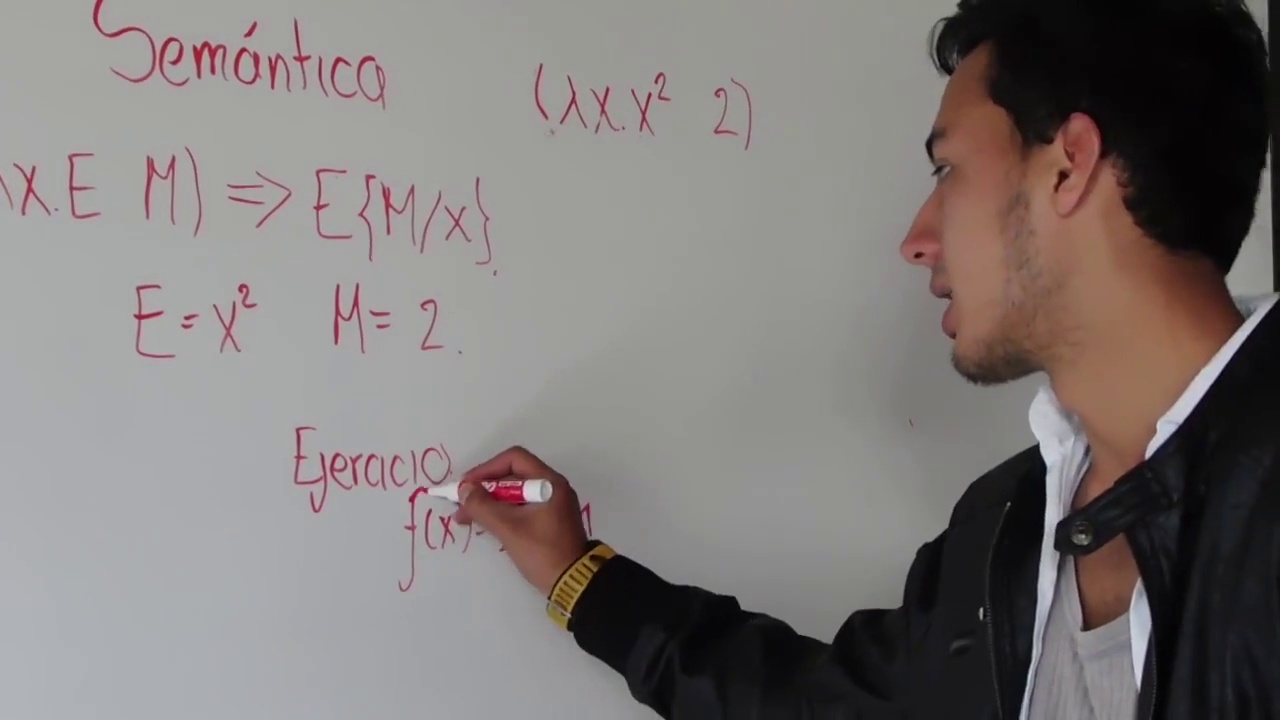 Semántica
(λx.x² 2)
x.E M) => E{M/x}
E = x² M = 2.
Ejercicio
f(x)